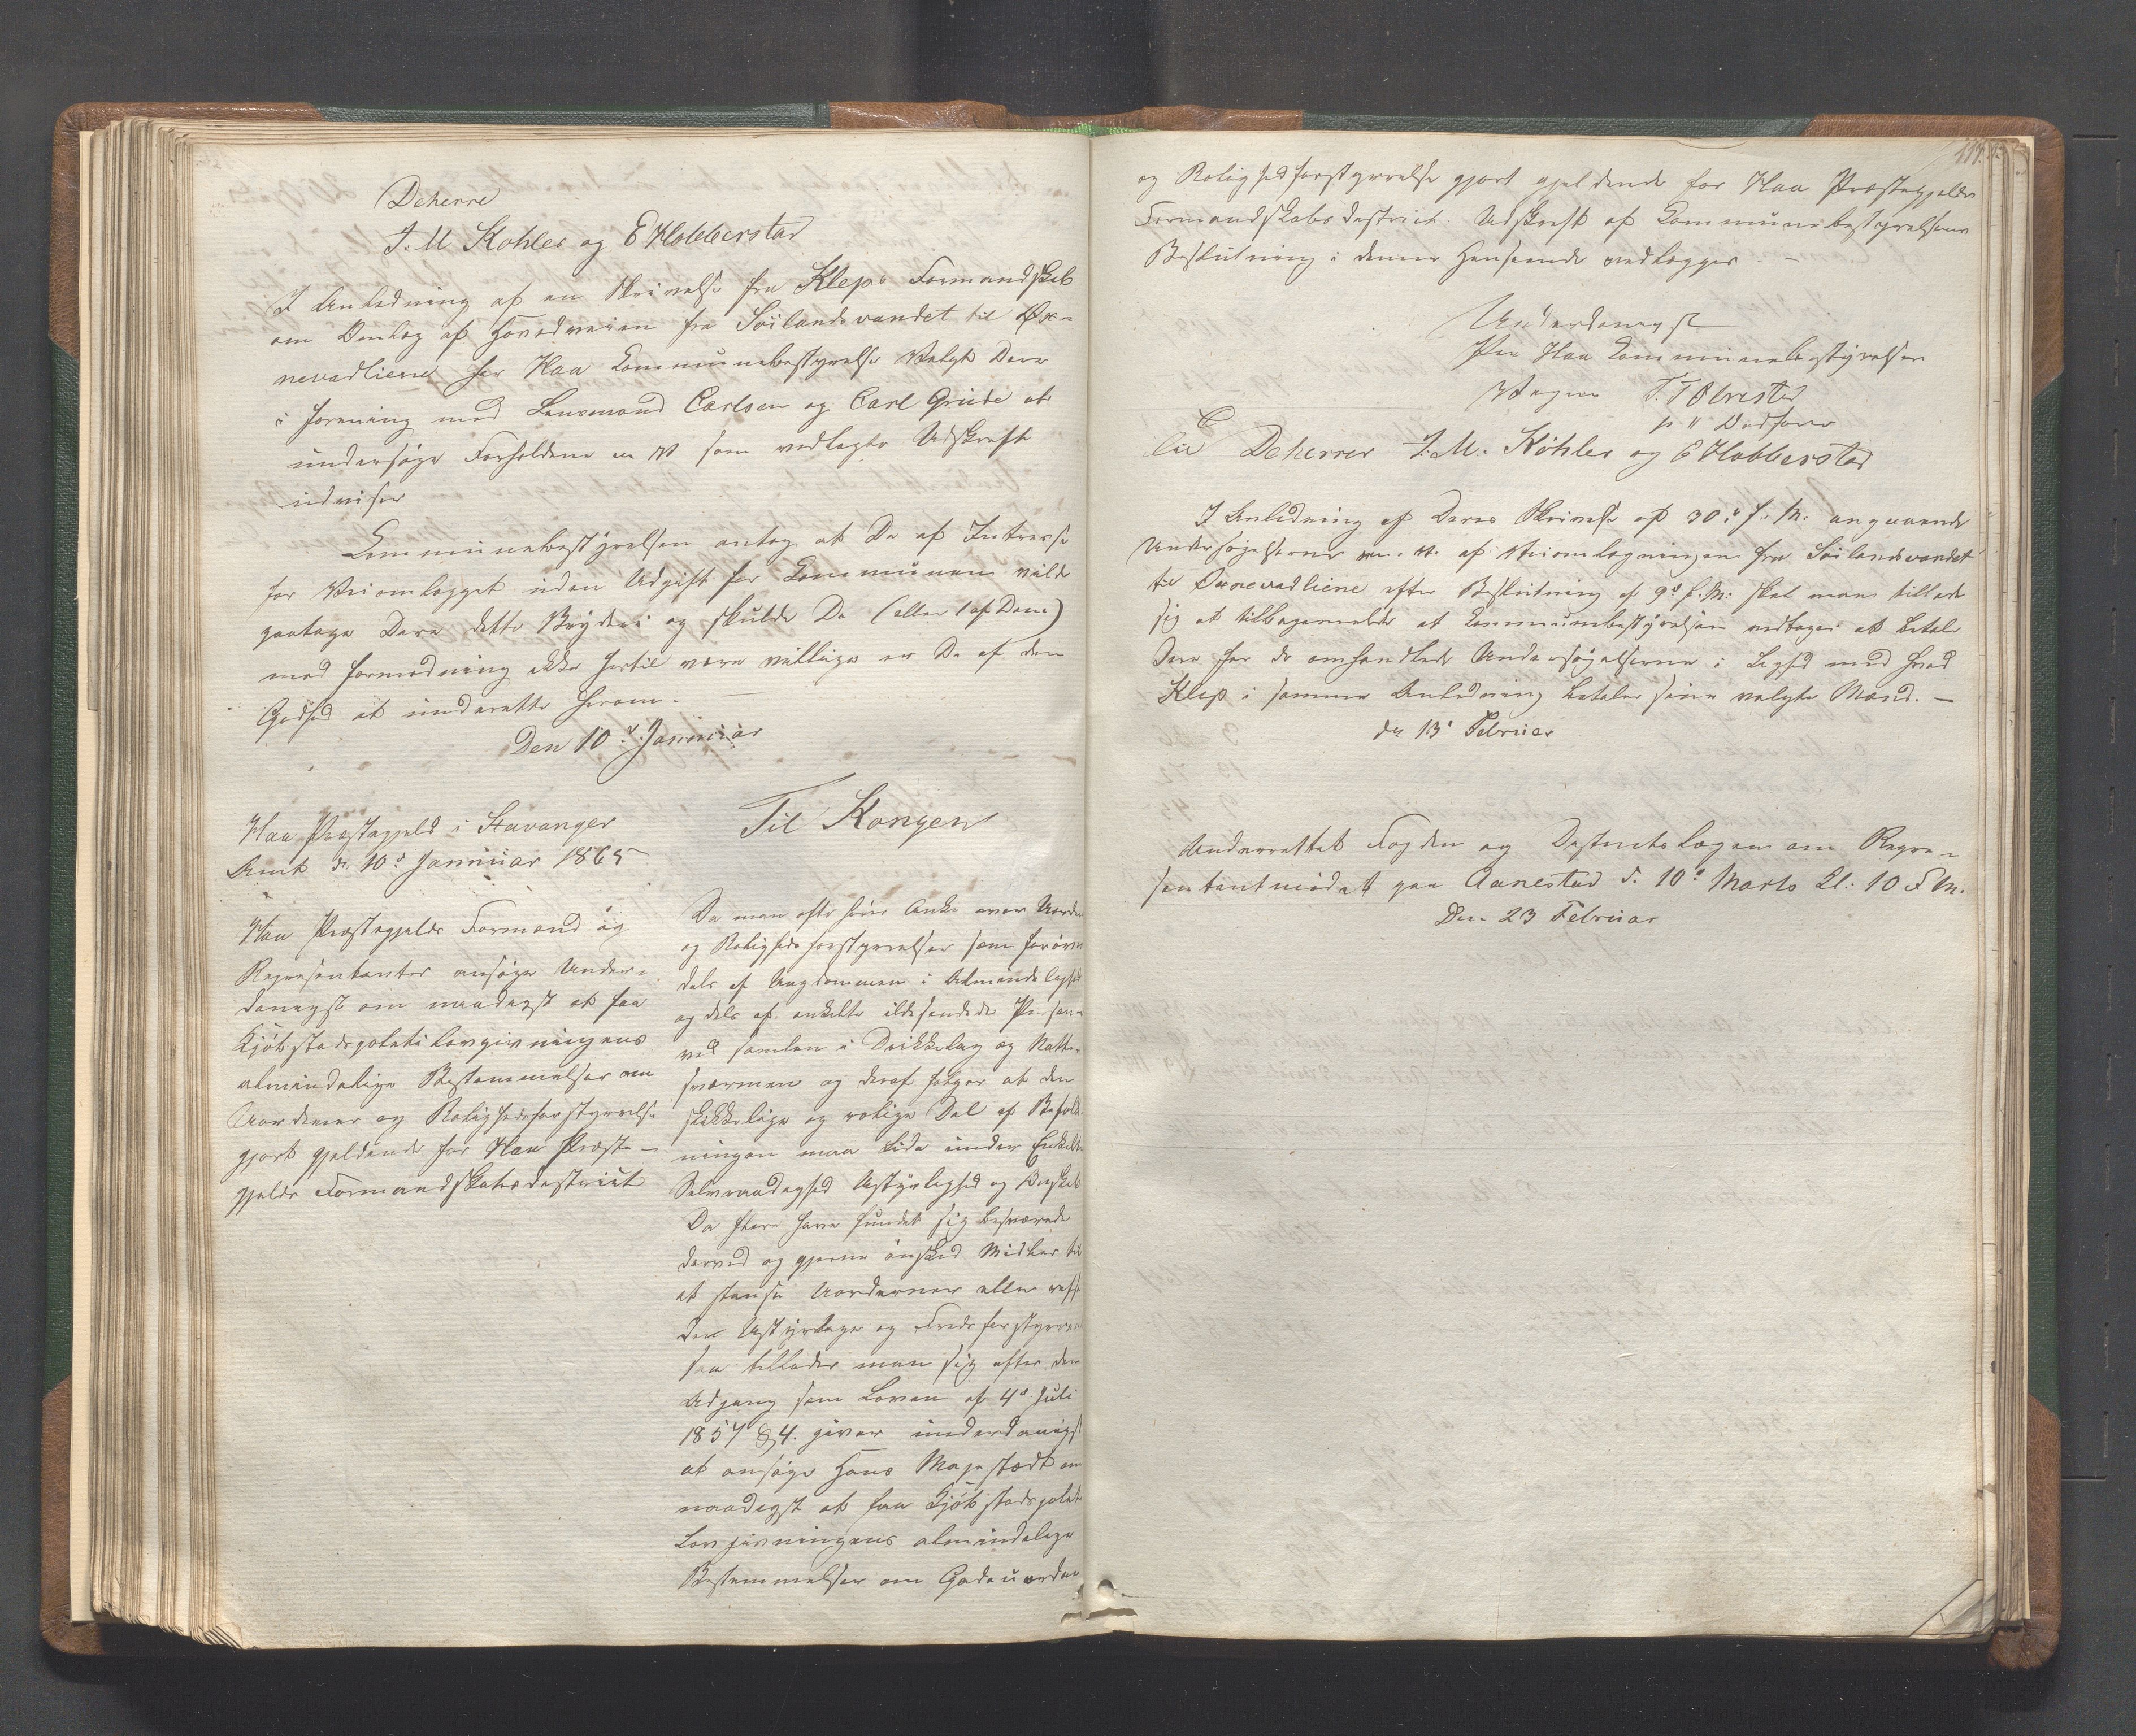 Deherre
T. M Kohler og E Hobberstad
I Anledning af en Skrivelse fra Kleps Formandskab
om Omlæg af Hovedveien fra Søilandsvandet til Øx-
nevadliene har Haa Communebestyrelse Valgt Dere
i forening med Lensmand Carlsen og Carl Gride at
undersøge Forholdene m V som vedlagte Udskrift
udviser
Communebestyrelsen antog at De af Intresse
for Veiomlægget uden Udgift for Communen vilde
paatage Dere dette Bryderi og skulde De (eller 1 af Dem)
mod formodning ikke hertil være villige er De af den
Godhed at underrette herom. —
Den 10d Januuar
Haa Præstegjeld i Stavanger
Amt d. 10d Januuar 1865
Til Kongen
Haa Præstegjelds Formænd og
Repræsentanter ansøger Under-
danigst om naadigst at faa
Kjøbstadspolitilovgivningens
almindelige Bestemmelser om
Uordener og Rolighedsforstyrrelse
gjort gjældende for Haa Præste-
gjelds Formandskabsdistrict
Da man ofte hører Anke over Uorden
og Rolighedsforstyrrelser som forøves
dels af Ungdommen i Almindelighed
og dels af enkelte ildesindede Personer
ved samlen i Drikkelag og Natte-
sværmen og deraf følger at den
skikkelige og rolige Del af Befolk-
ningen maa lide under Enkeltes
Selvraadighed Ustyrlighed og Ondskab
Da flere have fundet sig besværede
derved og gjerne ønsked Midler til
at standse Uordener eller refse
den Ustyrlige og Fredsforstyrrer
saa tillader man sig efter den
Adgang som Loven af 4d Juli
1857 § 4. giver underdanigst
at ansøge Hans Majestædt om
naadigst at faa Kjøbstadspoliti
Lovgivningens almindelige
Bestemmelser om Gadeuorden
og Rolighedsforstyrrelse gjort gjeldende for Haa Præstegjelds
Formandskabsdistrict. Udskrift af Communebestyrelsens
Beslutning i denne Henseende vedlægges. —
Underdanigst
Paa Haa Communebestyrelses
Vegne T. T Obrestad
p. t. Ordfører
Til Deherrer T. M. Köhler og E Hobberstad
I Anledning af Deres Skrivelse af 30d f. M. angaaende
Undersøgelserne m. V. af Veiomlægningen fra Søilandsvandet
til Oxnevadliene efter Beslutning af 9d f. M. skal man tillade
sig at tilbagemelde at Communebestyrelsen vedtager at betale
Dere for de omhandlede Undersøgelserne i Lighed med hvad
Klep i samme Anledning betaler sine valgte Mænd. —
dn 13d Februar
Underrettet Fogden og Districtslægen om Repræ-
sentantmødet paa Aanestad d. 10d Marts Kl: 10 F M.
Den 23 Februar